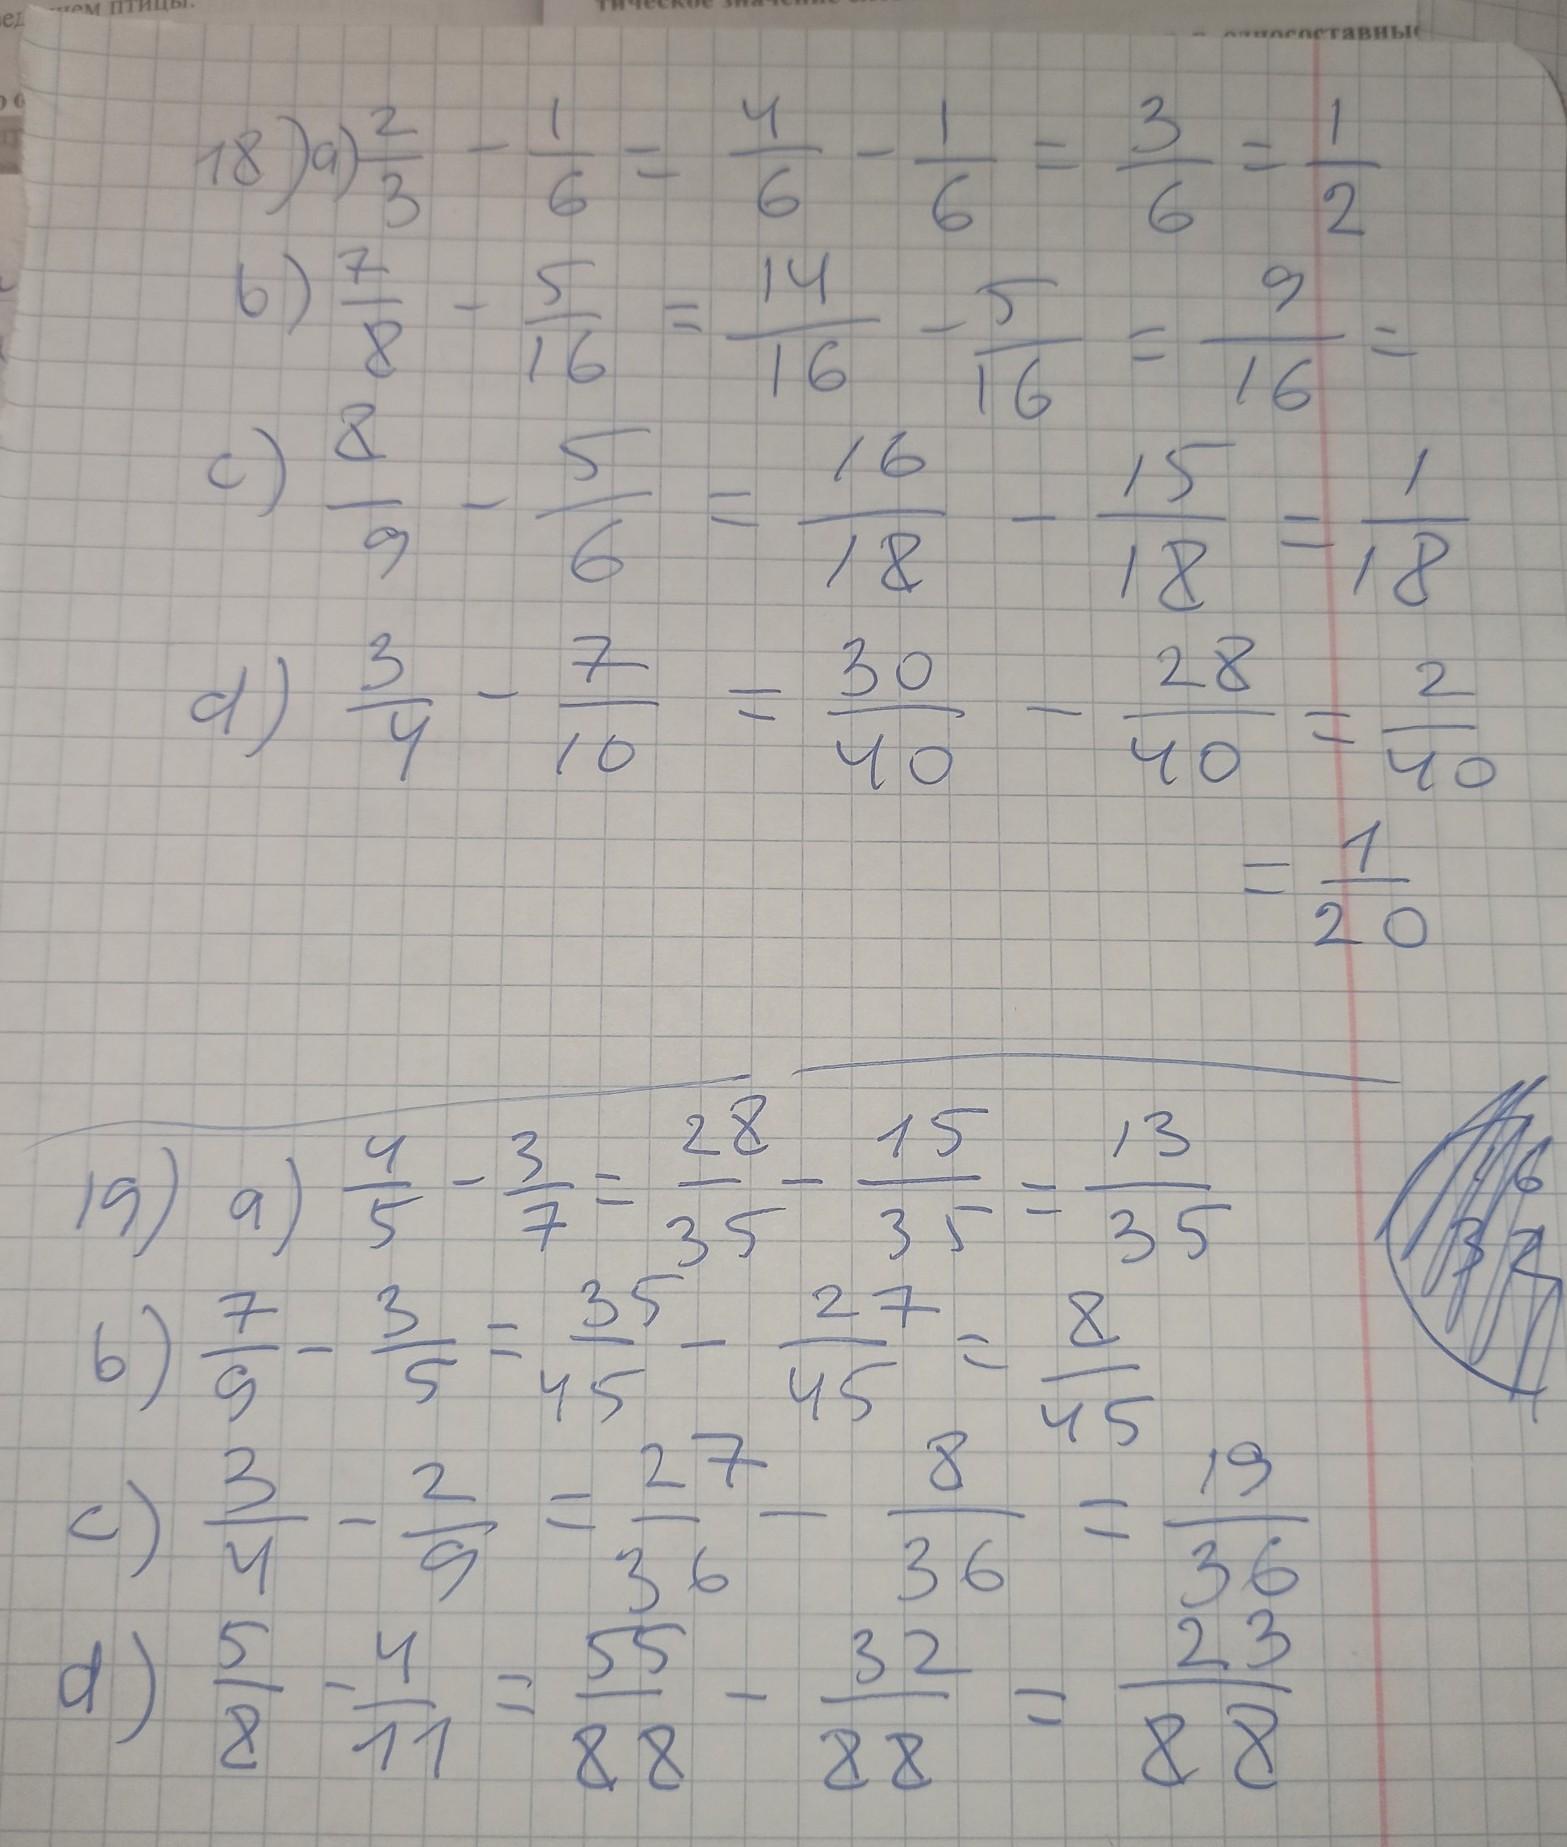 тическое значение
односоставные
18) a) 2/3 - 1/6 = 4/6 - 1/6 = 3/6 = 1/2
b) 7/8 - 5/16 = 14/16 - 5/16 = 9/16 =
c) 8/9 - 5/6 = 16/18 - 15/18 = 1/18
d) 3/4 - 7/10 = 30/40 - 28/40 = 2/40
= 1/20
19) a) 4/5 - 3/7 = 28/35 - 15/35 = 13/35
b) 7/9 - 3/5 = 35/45 - 27/45 = 8/45
c) 3/4 - 2/9 = 27/36 - 8/36 = 19/36
d) 5/8 - 4/11 = 55/88 - 32/88 = 23/88